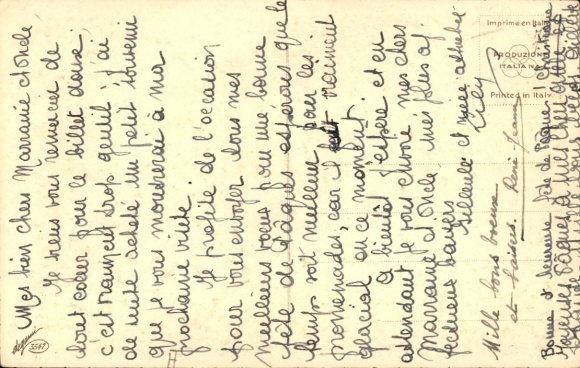 Mes bien chers Marraine et Oncle
Je viens vous remercier de
tout cœur pour le billet doux,
c'est vraiment trop gentil j'ai
de suite acheté un petit souvenir
que je vous montrerai à ma
prochaine visite.
Je profite de l'occasion
pour vous envoyer tous mes
meilleurs vœux pour une bonne
fête de Pâques espérons que le
temps soit meilleur pour les
promenades, car il fait vraiment
glacial en ce moment.
A bientôt j'espère et en
attendant je vous envoie mes chers
Marraine et Oncle mes plus af-
fectueux baisers
filleule et nièce attachée
Mille bons vœux
et baisers. René Jeanne
Bonne & heureuse fête de Pâques
Joyeuse Pâques
Imprimé en Italie
PRODUZIONE
ITALIANA
Printed in Italy
3567